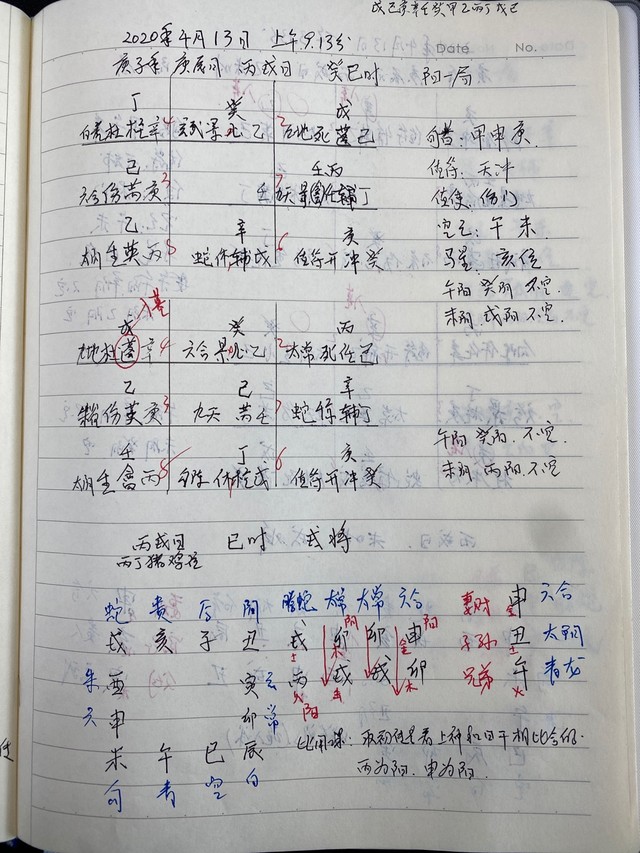 戊己庚辛壬癸甲乙丙丁戊己
2020年4月13日 上午9.13分 Date No.
庚子年 庚辰月 丙戌日 癸巳时 阳一局
丁 癸 戊
白虎杜柱辛4 玄武景心乙 九地死 己
旬首:甲申庚
己 壬丙
六合伤芮庚 壬 九天 任 丁
值符:天冲
值使:伤门
乙 辛 庚
太阴生英丙8 蛇休辅戊 6 值符开冲癸
空亡:午 未
马星:亥位
午阳 癸阴 不空.
未阴 戊阳 不空.
入墓
戊 癸 丙
九地杜 辛4 六合景心乙 2 太常死任己
乙 己 辛
朱雀伤英庚3 九天 芮壬 7 蛇惊辅丁
壬 丁 庚
太阴生禽丙8 休柱戊 6 值符开冲癸
午阳 癸阴.不空.
未阴 丙阳.不空.
丙戌日 巳时 戌将
丙丁猪鸡位
蛇 贵 后 阴 螣蛇 太常 太常 六合 妻财 申 六合
戌 亥 子 丑 戌 卯 卯 申 子孙 丑 太阴
朱 酉 寅 玄 丙 戌 戌 卯 兄弟 午 青龙
六 申 卯 常
未 午 巳 辰
勾 青 空 白
比用课:取初传是看上神和日干相比合的.
丙为阳.申为阳.